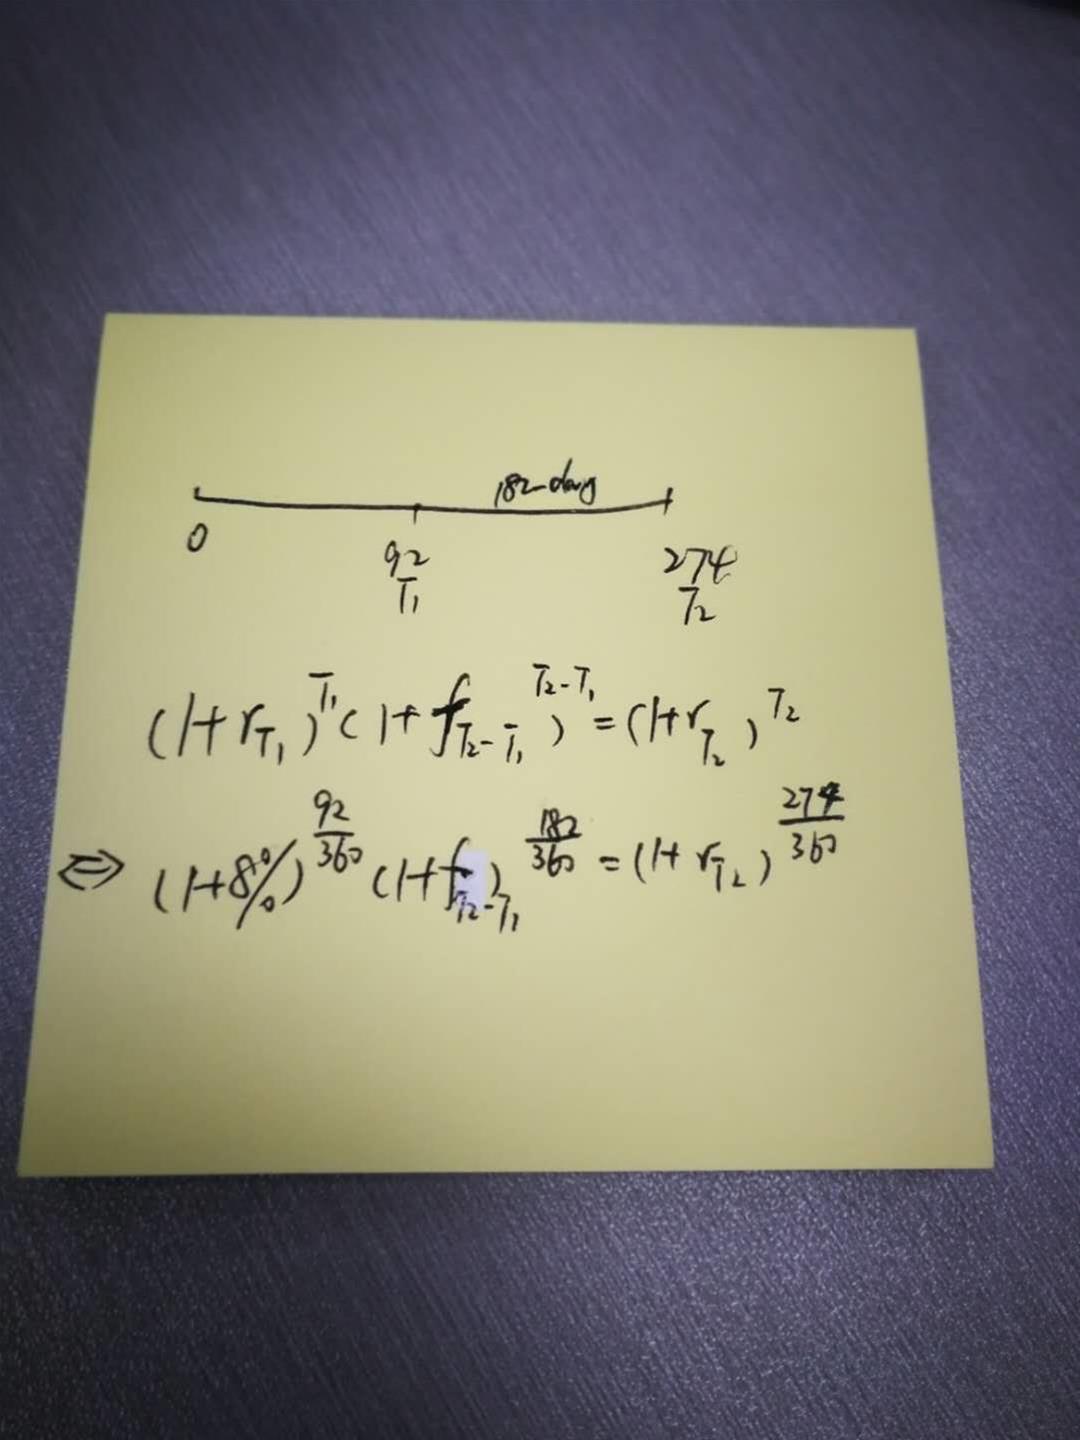 182-day
0 92 274
T₁ T₂
(1+r_{T₁})^{T₁}(1+f_{T₂-T₁})^{T₂-T₁}=(1+r_{T₂})^{T₂}
⇔ (1+8%)^{92/360}(1+f_{T₂-T₁})^{182/360}=(1+r_{T₂})^{274/360}